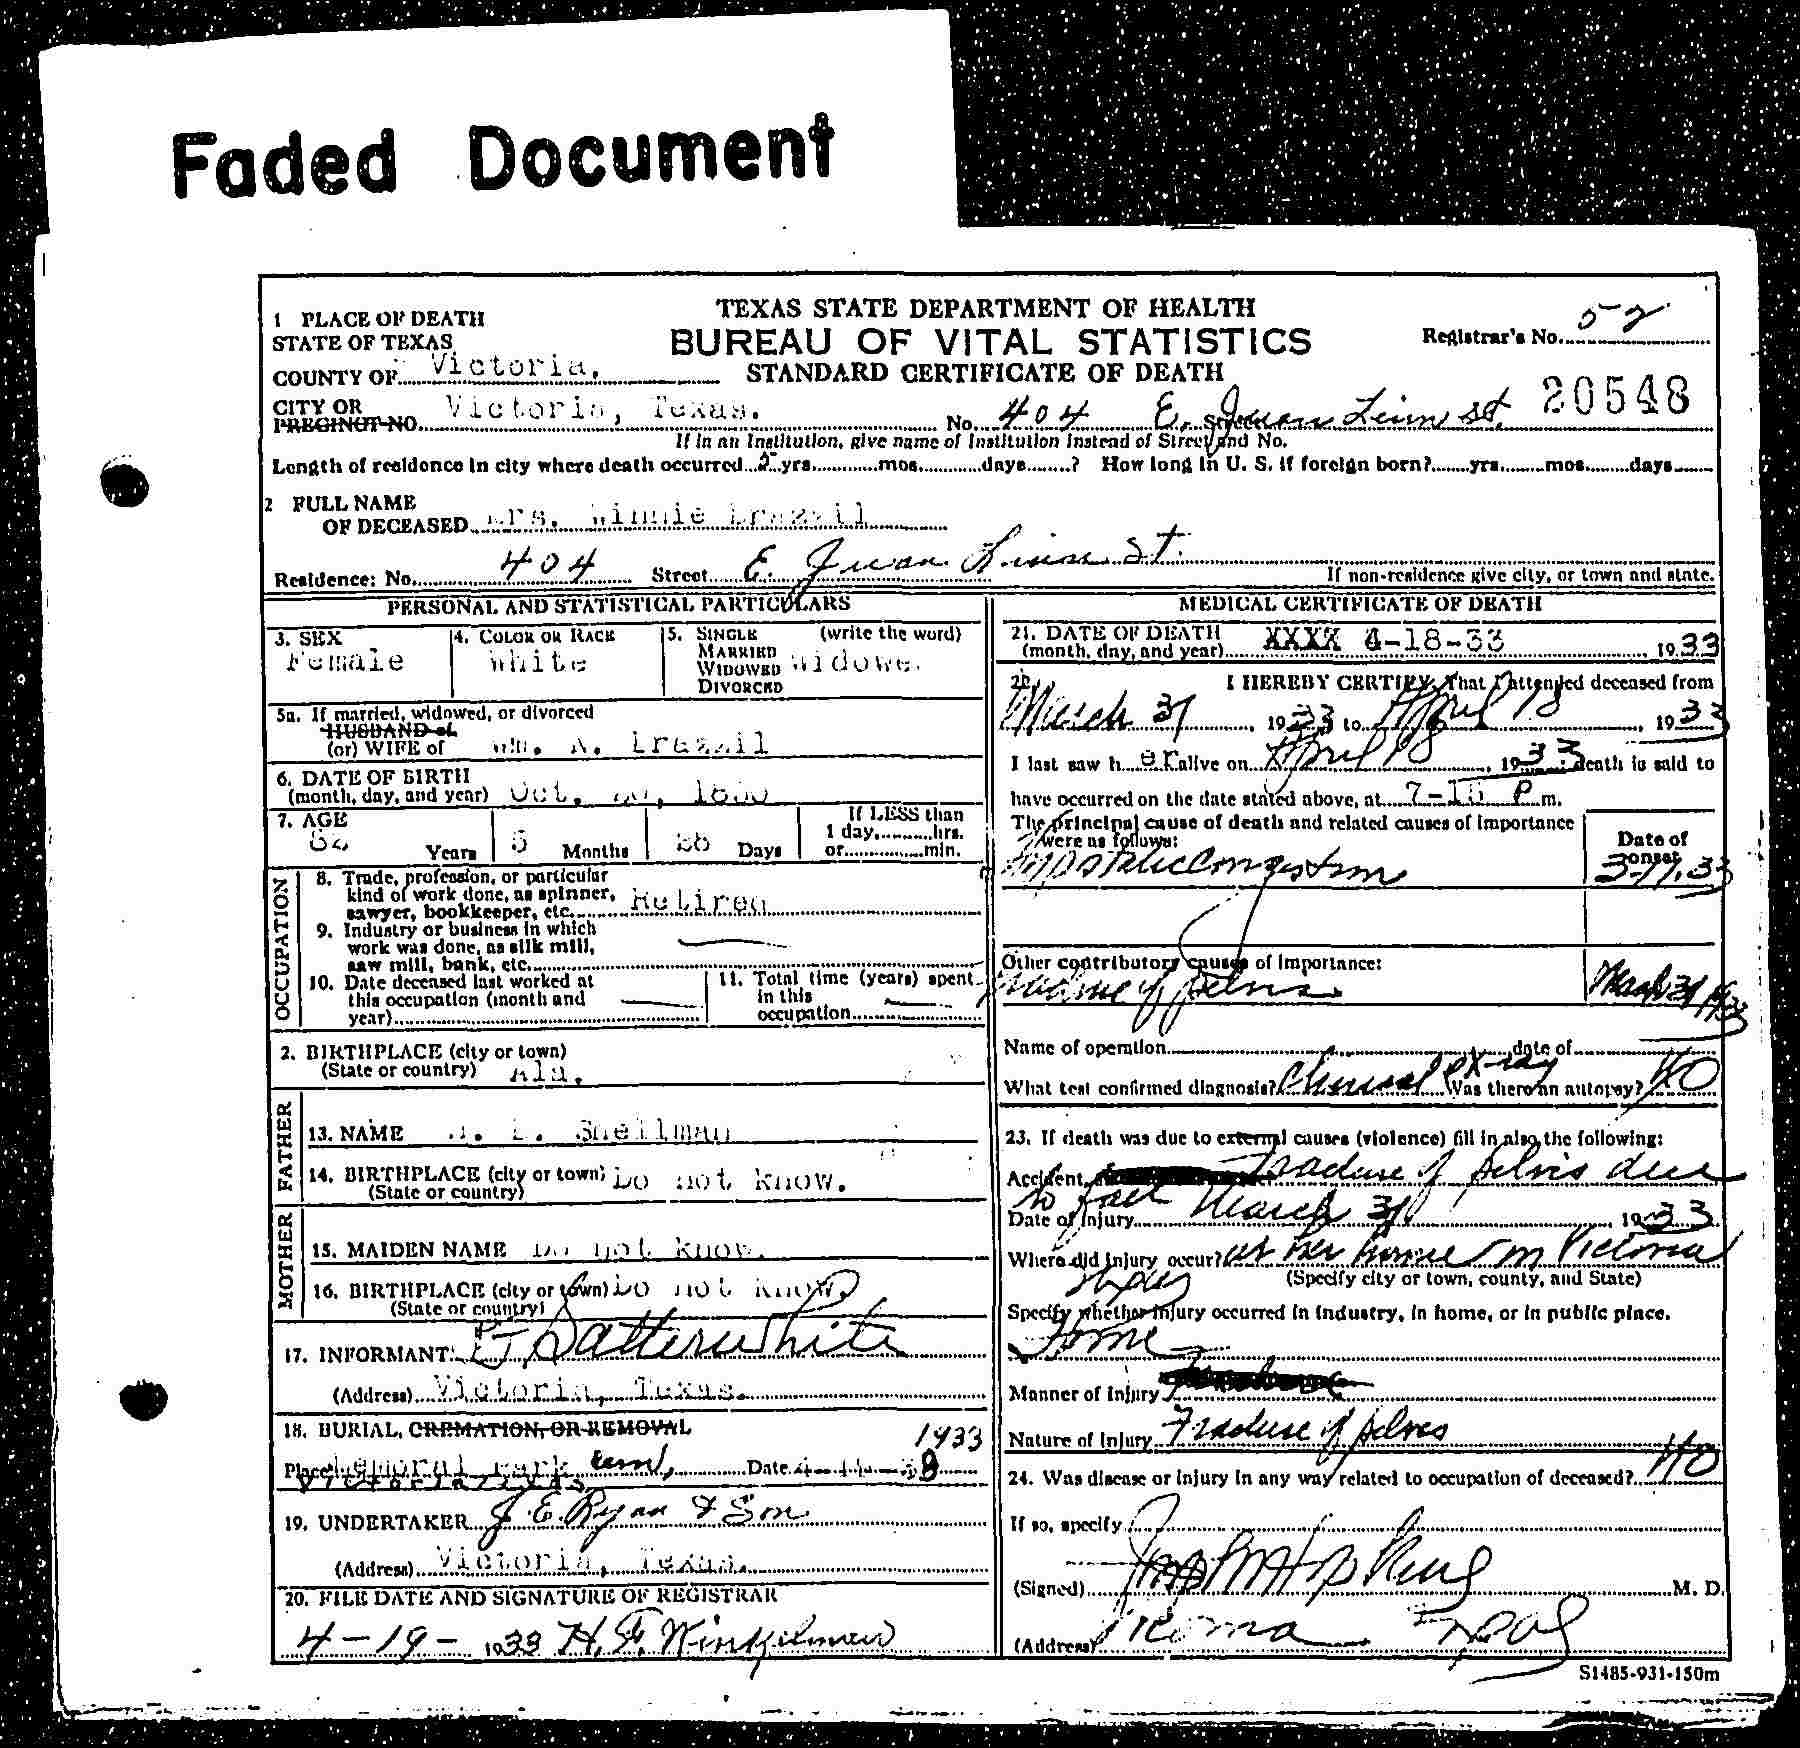 Faded Document
TEXAS STATE DEPARTMENT OF HEALTH
BUREAU OF VITAL STATISTICS
STANDARD CERTIFICATE OF DEATH
1 PLACE OF DEATH
STATE OF TEXAS
COUNTY OF Victoria,
CITY OR
PRECINCT NO. Victoria, Texas. No. 404 E. Juan Linn St.
Registrar's No. 52
20548
If in an Institution, give name of Institution instead of Street and No.
Length of residence in city where death occurred yrs. mos. days ? How long in U. S. if foreign born? yrs. mos. days
2 FULL NAME
OF DECEASED Mrs. Winnie Brazzil
Residence: No. 404 Street E. Juan Linn St.
If non-residence give city, or town and state.
PERSONAL AND STATISTICAL PARTICULARS
3. SEX
Female
4. COLOR OR RACE
White
5. SINGLE (write the word)
MARRIED
WIDOWED
DIVORCED
Widowe
5a. If married, widowed, or divorced
HUSBAND of
(or) WIFE of Wm. A. Brazzil
6. DATE OF BIRTH
(month, day, and year) Oct. 1850
7. AGE
82 Years 5 Months Days
If LESS than
1 day, hrs.
or min.
OCCUPATION
8. Trade, profession, or particular
kind of work done, as spinner,
sawyer, bookkeeper, etc. Retired
9. Industry or business in which
work was done, as silk mill,
saw mill, bank, etc.
10. Date deceased last worked at
this occupation (month and
year)
11. Total time (years) spent
in this
occupation
2. BIRTHPLACE (city or town)
(State or country) Ala.
FATHER
13. NAME Shellman
14. BIRTHPLACE (city or town) Do not know.
(State or country)
MOTHER
15. MAIDEN NAME Do not know.
16. BIRTHPLACE (city or town) Do not know.
(State or country)
17. INFORMANT Satterwhite
(Address) Victoria, Texas.
18. BURIAL, CREMATION, OR REMOVAL
1933
Place Memorial Park Cem, Date 4-
Victoria Texas
19. UNDERTAKER J. E. Ryan & Son
(Address) Victoria, Texas.
20. FILE DATE AND SIGNATURE OF REGISTRAR
4-19- 1933 H. F. Winkelman
MEDICAL CERTIFICATE OF DEATH
21. DATE OF DEATH
(month, day, and year) XXXX 4-18-33 1933
22. I HEREBY CERTIFY, That I attended deceased from
March 31, 1933 to April 18, 1933
I last saw h er alive on April 18, 1933; death is said to
have occurred on the date stated above, at 7-10 P m.
The principal cause of death and related causes of importance
were as follows:
Hypostatic Congestion
Date of
onset
Other contributory causes of importance:
Fracture of pelvis
March 31 1933
Name of operation date of
What test confirmed diagnosis? Clinical & X-ray Was there an autopsy? No
23. If death was due to external causes (violence) fill in also the following:
Accident, Fracture of pelvis due
to fall
Date of injury March 31, 1933
Where did injury occur? at her home in Victoria
Texas
(Specify city or town, county, and State)
Specify whether injury occurred in industry, in home, or in public place.
Home
Manner of injury
Nature of Injury Fracture of pelvis
24. Was disease or injury in any way related to occupation of deceased? No
If so, specify
(Signed) Hopkins M. D.
(Address) Victoria Texas
S1485-931-150m